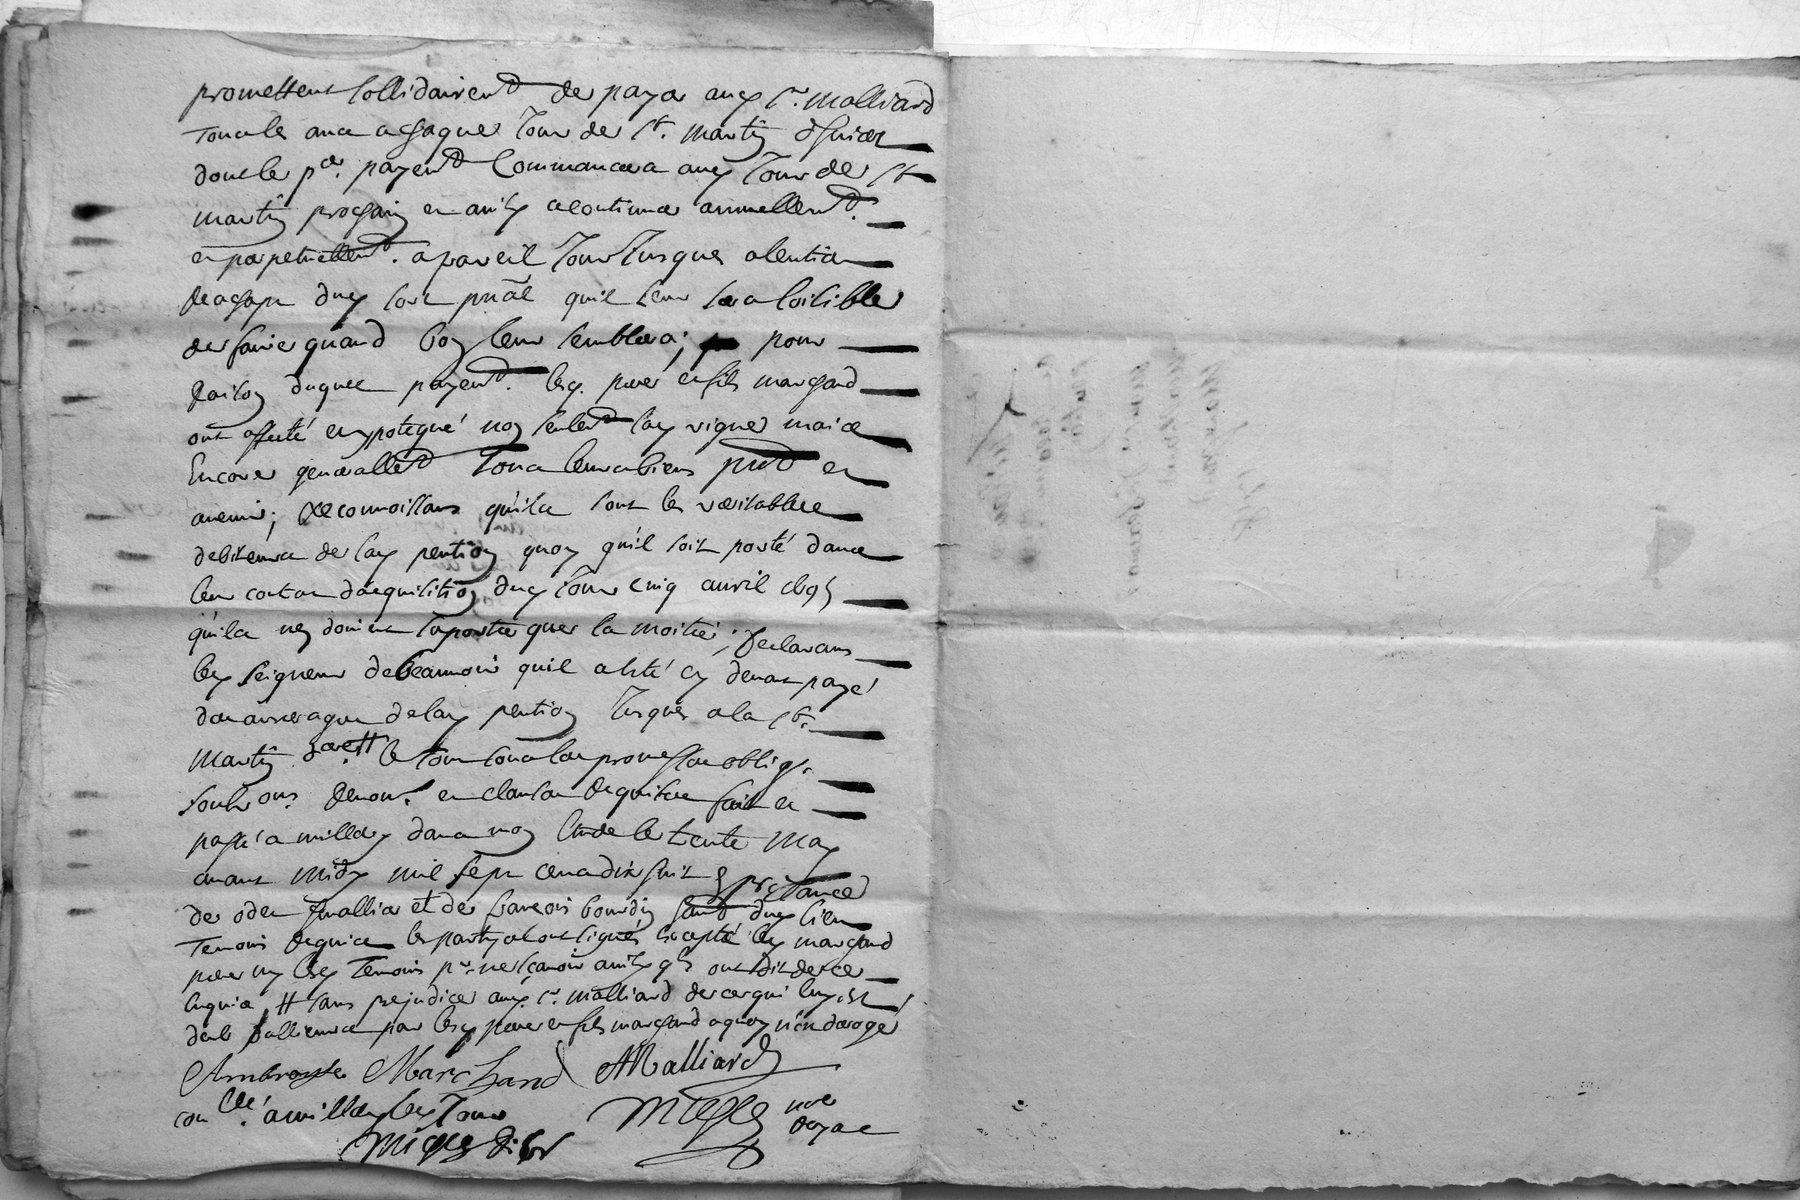 promettent sollidairent de payer audt sr. Malliard
tous les ans a chaque jour de st. Martin d'hiver
dont le per. payent commancera audt jour de st
Martin prochain et ainsy a continuer annuellent.
et perpetuellent. a pareil jour jusques a lentier
rachapt dudt sort pñal quil leur sera loisible
de faire quand bon leur semblera; pour
raison duquel payent. lesd. pere et fils marchand
ont affecté et ypotequé non seulent lad vigne mais
encore generallet tous leurs biens pnts et
avenir; reconnoissans quils sont les veritables
debiteurs de lad pention quoy quil soit porté dans
leur contrat dacquisition dud jour cinq avril
quils nen doivent suporter que la moitié; declarans
led seigneur de beaumoir quil a esté cy devant payé
des arrerages de lad pention jusques a la st.
Martin le tout sous les promesses oblig.
soubs ons. renont. et clauses requises fait et
passé a millery dans mon étude le trente may
avant midy mil sept cens dix huit presences
de odet et de françois bourdin dud lieu
temoins requis les partyes ont signés excepté led marchand
pere ny lesd temoins pr. ne sçavoir ainsy qls ont dit de ce
enquis # sans prejudice audt. sr. malliard de ce qui luy est
deub dallieurs par lesd pere et fils marchand a quoy nen deroge
Ambroise Marchand AMalliard
conlle. a millery led jour